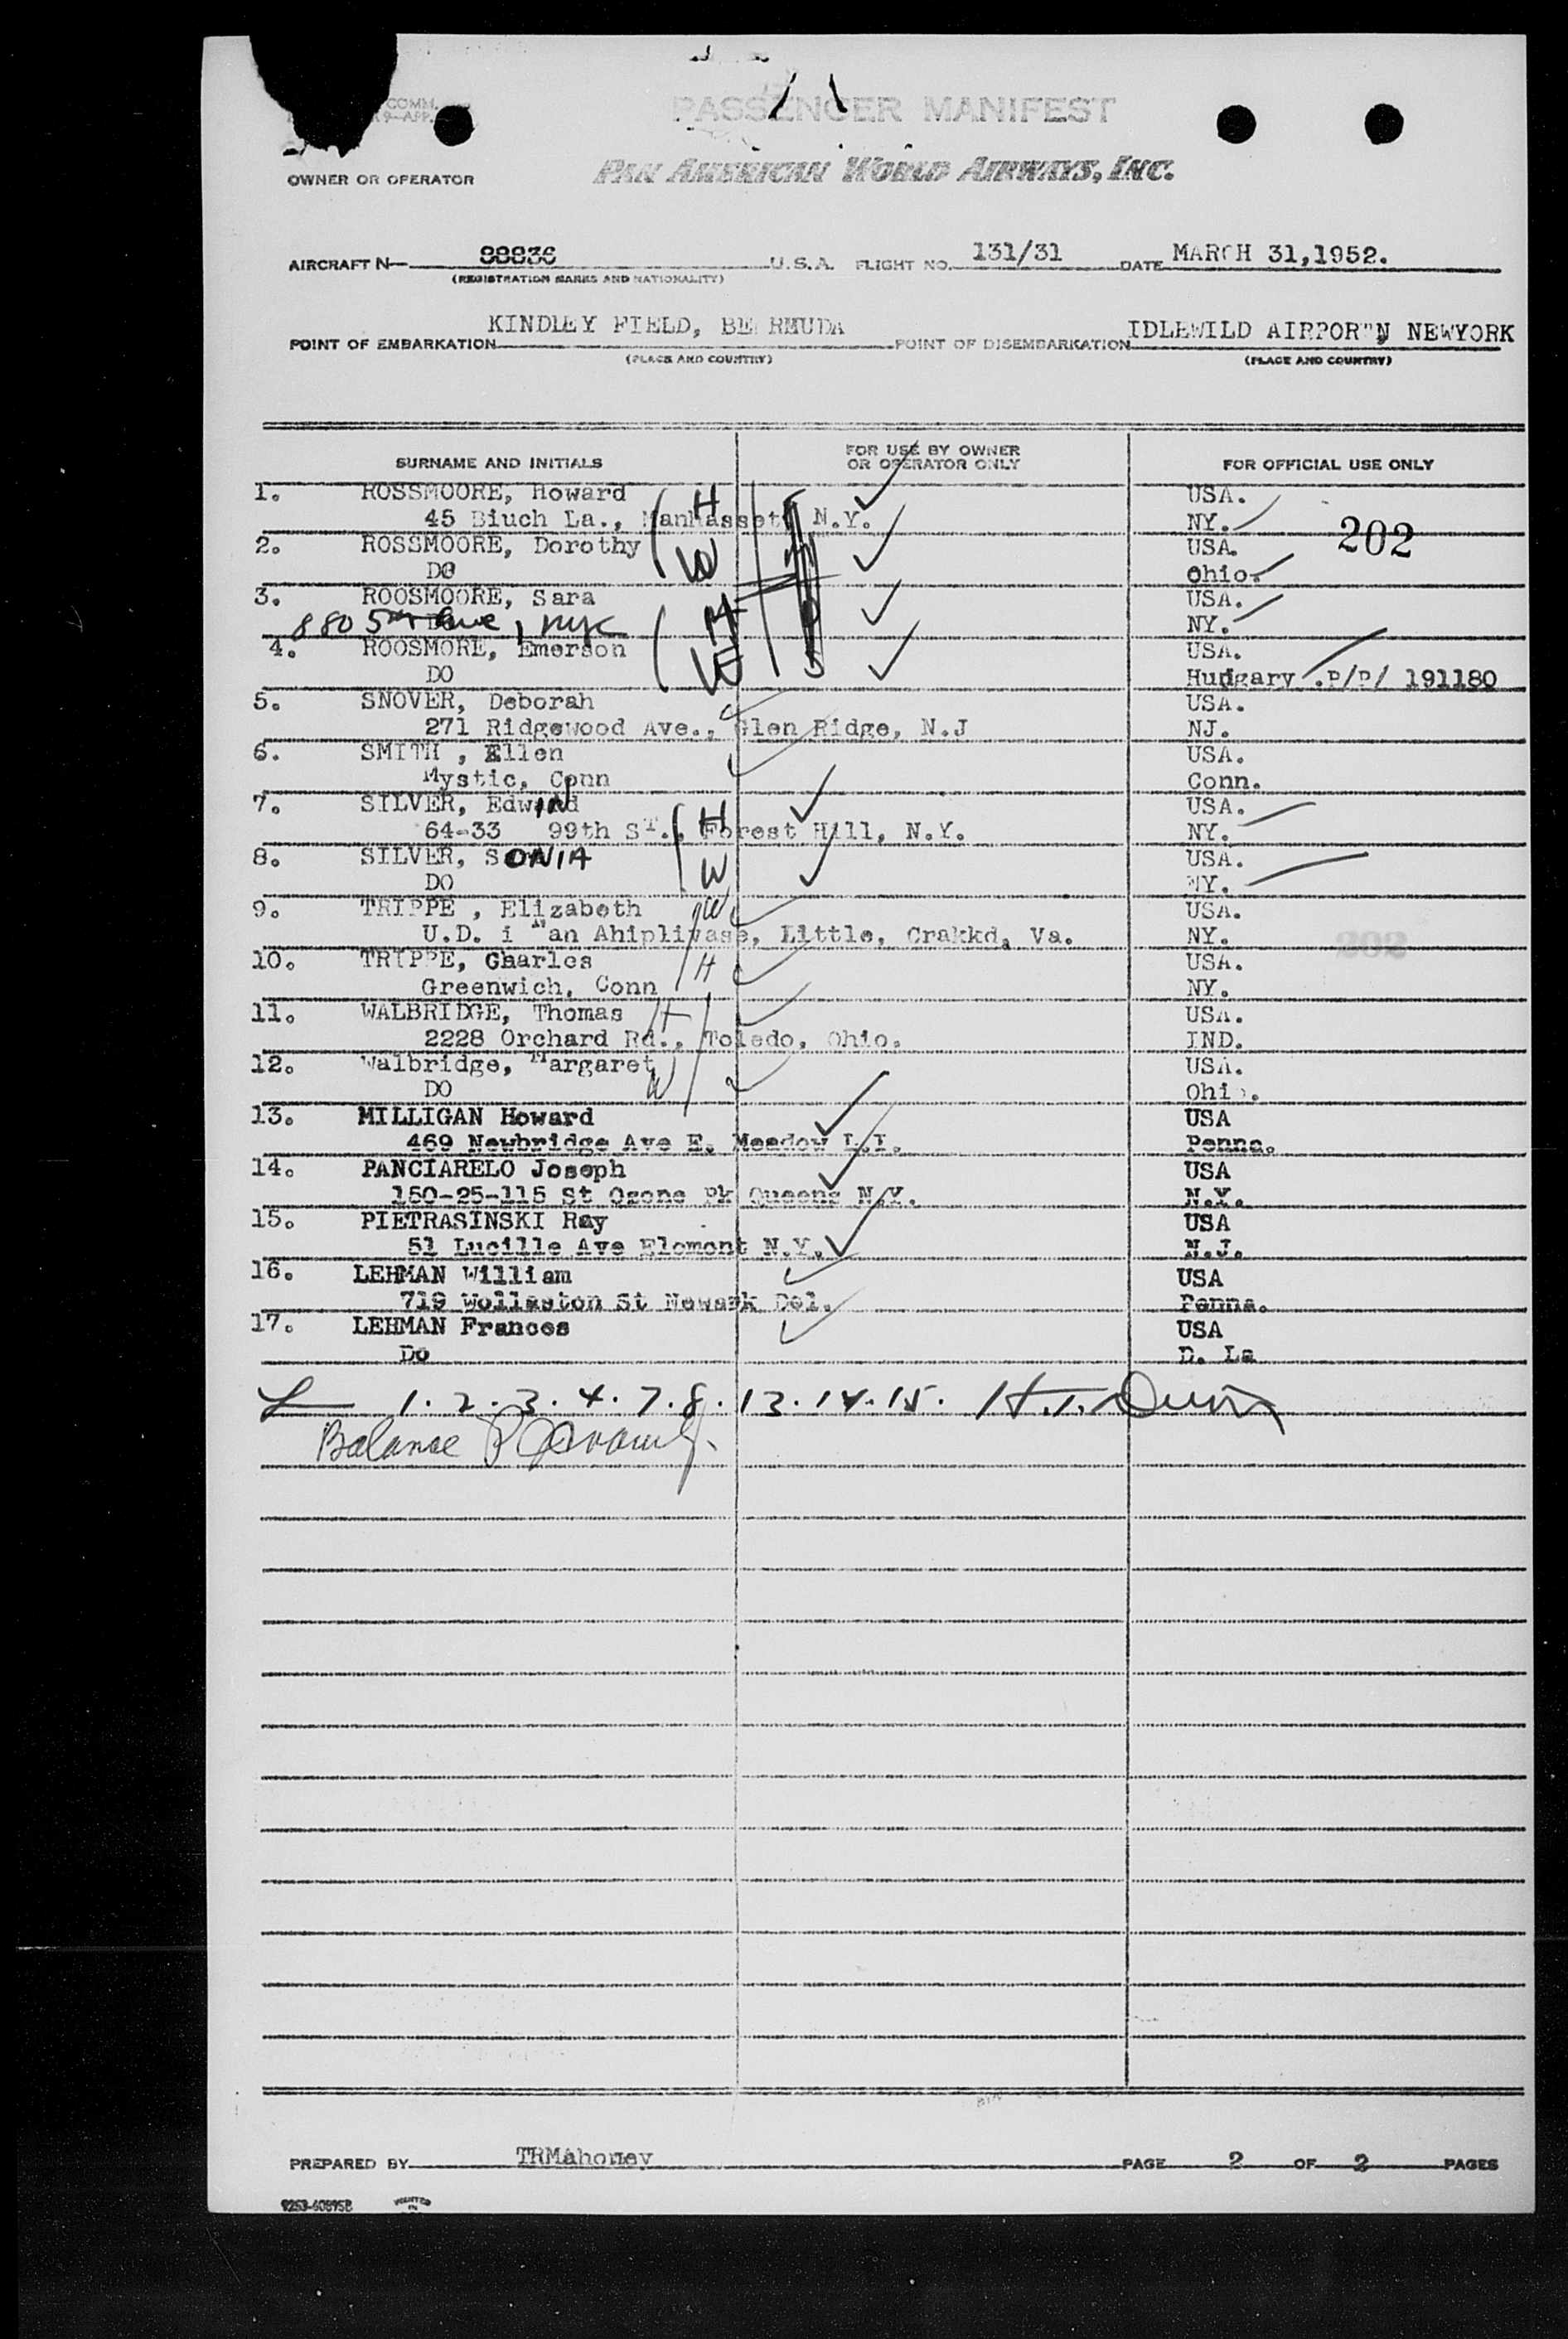 COMM.
9-APP.
PASSENGER MANIFEST
OWNER OR OPERATOR
PAN AMERICAN WORLD AIRWAYS, INC.
AIRCRAFT N- 88836 U.S.A. FLIGHT NO. 131/31 DATE MARCH 31,1952.
(REGISTRATION MARKS AND NATIONALITY)
POINT OF EMBARKATION KINDLEY FIELD, BERMUDA POINT OF DISEMBARKATION IDLEWILD AIRPOR NEWYORK
(PLACE AND COUNTRY) (PLACE AND COUNTRY)
SURNAME AND INITIALS FOR USE BY OWNER OR OPERATOR ONLY FOR OFFICIAL USE ONLY
1. ROSSMOORE, Howard H USA.
45 Biuch La., Manhasset, N.Y. NY. 202
2. ROSSMOORE, Dorothy W USA.
DO Ohio.
3. ROOSMOORE, Sara USA.
880 5th Ave, NYC NY.
4. ROOSMORE, Emerson USA.
DO Hungary .P/P/ 191180
5. SNOVER, Deborah USA.
271 Ridgewood Ave., Glen Ridge, N.J NJ.
6. SMITH , Ellen USA.
Mystic, Conn Conn.
7. SILVER, Edwin USA.
64-33 99th ST., Forest Hill, N.Y. H NY.
8. SILVER, SONIA USA.
DO W NY.
9. TRIPPE , Elizabeth W USA.
U.D. i an Ahiplivase, Little, Crakkd, Va. NY. 202
10. TRIPPE, Charles H USA.
Greenwich, Conn NY.
11. WALBRIDGE, Thomas H USA.
2228 Orchard Rd., Toledo, Ohio. IND.
12. Walbridge, Margaret USA.
DO W Ohio.
13. MILLIGAN Howard USA
469 Newbridge Ave E. Meadow L.I. Penna.
14. PANCIARELO Joseph USA
150-25-115 St Ozone Pk Queens N.Y. N.Y.
15. PIETRASINSKI Ray USA
51 Lucille Ave Elomont N.Y. N.J.
16. LEHMAN William USA
719 Wollaston St Newark Del. Penna.
17. LEHMAN Frances USA
Do D. La
1. 2. 3. 4. 7. 8. 13. 14. 15.
Balance
PREPARED BY TRMAhoney PAGE 2 OF 2 PAGES